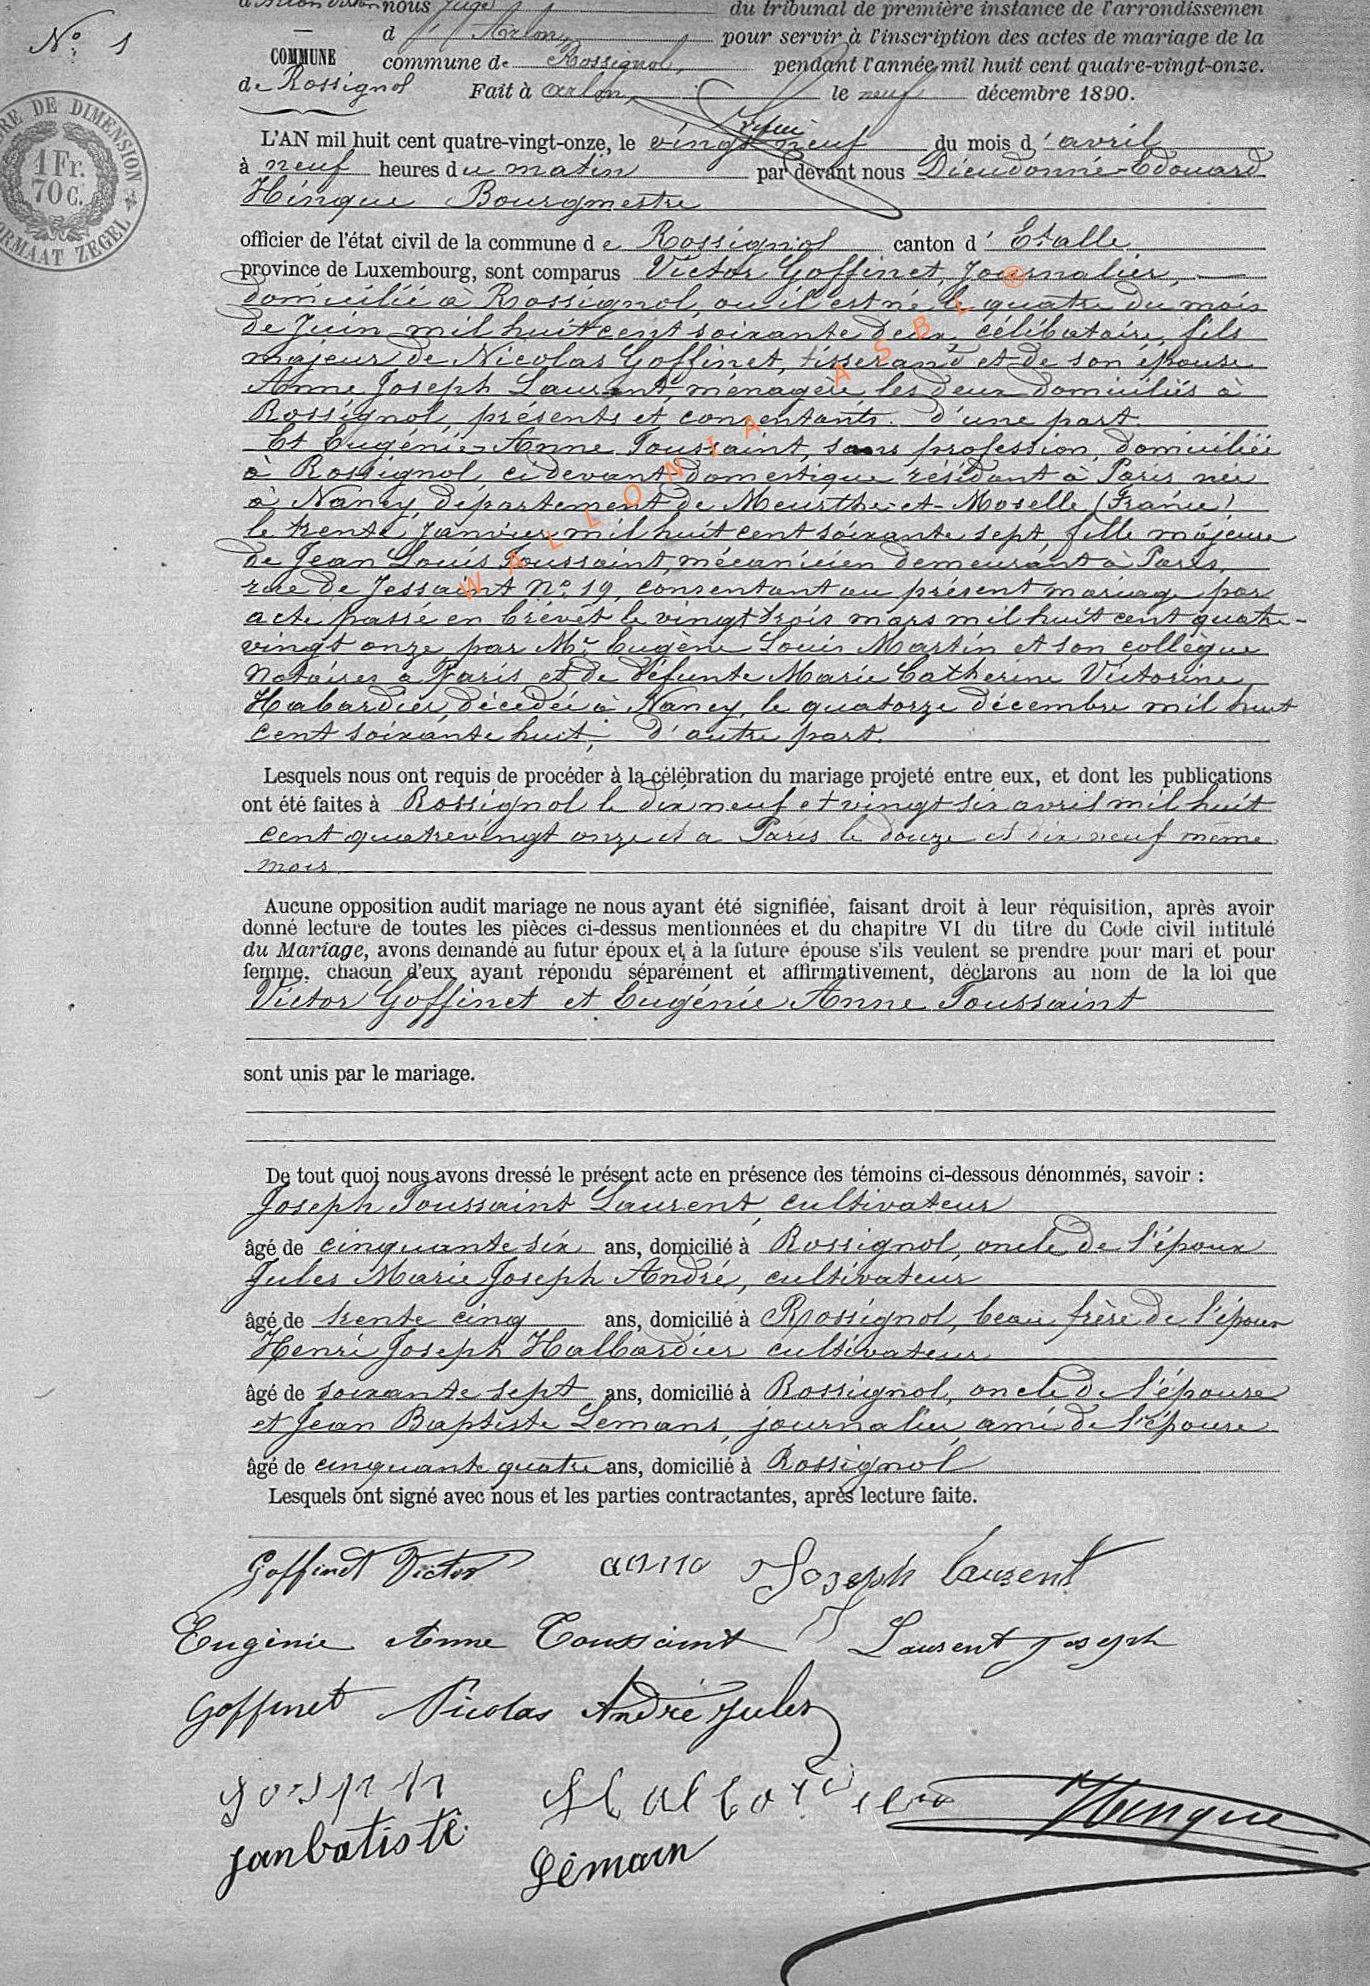 nous Juge du tribunal de première instance de l'arrondissemen
No 1 d'Arlon, pour servir à l'inscription des actes de mariage de la
COMMUNE commune de Rossignol, pendant l'année mil huit cent quatre-vingt-onze.
de Rossignol Fait à arlon, le neuf décembre 1890.
RE DE DIMENSION
1 Fr. 70 C.
ORMAAT ZEGEL
L'AN mil huit cent quatre-vingt-onze, le vingt neuf du mois d'avril
à neuf heures du matin par devant nous Dieudonné-Edouard
Hinque Bourgmestre
officier de l'état civil de la commune de Rossignol canton d'Etalle
province de Luxembourg, sont comparus Victor Goffinet, Journalier,
domicilié à Rossignol, où il est né le quatre du mois
de Juin mil huit cent soixante deux, célibataire, fils
majeur de Nicolas Goffinet, tisserand et de son épouse
Anne Joseph Laurent, ménagère, les deux domiciliés à
Rossignol, présents et consentants. d'une part.
Et Eugénie-Anne Toussaint, sans profession, domiciliée
à Rossignol, ci devant domestique résidant à Paris née
à Nancy, département de Meurthe-et-Moselle (France)
le trente Janvier mil huit cent soixante sept, fille majeure
de Jean Louis Toussaint, mécanicien demeurant à Paris,
rue de Jessaint No 19, consentant au présent mariage par
acte passé en brévêt le vingt trois mars mil huit cent quatre-
vingt onze par Mr Eugène Louis Martin et son collègue
Notaires à Paris et de défunte Marie Catherine Victorine
Habardier, décédée à Nancy, le quatorze décembre mil huit
cent soixante huit, d'autre part.
WALLONIA ASBL ®
Lesquels nous ont requis de procéder à la célébration du mariage projeté entre eux, et dont les publications
ont été faites à Rossignol le dix neuf et vingt six avril mil huit
cent quatrevingt onze et à Paris le douze et dix neuf même
mois.
Aucune opposition audit mariage ne nous ayant été signifiée, faisant droit à leur réquisition, après avoir
donné lecture de toutes les pièces ci-dessus mentionnées et du chapitre VI du titre du Code civil intitulé
du Mariage, avons demandé au futur époux et à la future épouse s'ils veulent se prendre pour mari et pour
femme, chacun d'eux ayant répondu séparément et affirmativement, déclarons au nom de la loi que
Victor Goffinet et Eugénie Anne Toussaint
sont unis par le mariage.
De tout quoi nous avons dressé le présent acte en présence des témoins ci-dessous dénommés, savoir :
Joseph Toussaint Laurent, cultivateur
âgé de cinquante six ans, domicilié à Rossignol, oncle de l'époux
Jules Marie Joseph André, cultivateur
âgé de trente cinq ans, domicilié à Rossignol, beau frère de l'époux
Henri Joseph Halbardier cultivateur
âgé de soixante sept ans, domicilié à Rossignol, oncle de l'épouse
et Jean Baptiste Lemans, journalier, ami de l'épouse
âgé de cinquante quatre ans, domicilié à Rossignol
Lesquels ont signé avec nous et les parties contractantes, après lecture faite.
Goffinet Victor anno Joseph laurent
Eugènie Anne Toussaint Laurent Joseph
Goffinet Nicolas André Jules
Joseph Halbardier Hinque
janbatiste Lémarn